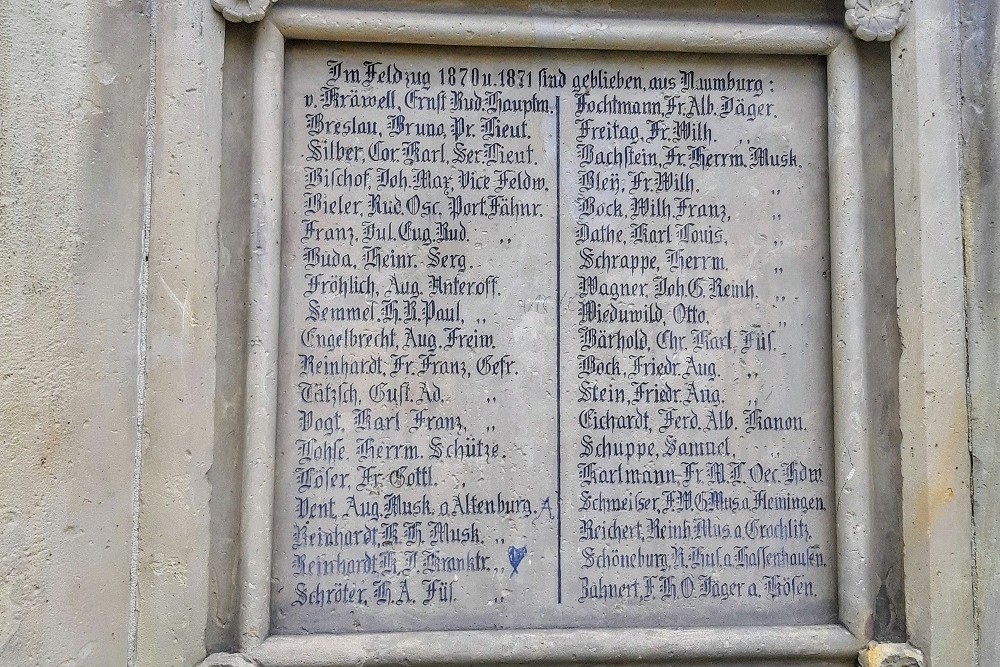 Im Feldzug 1870 u. 1871 sind geblieben, aus Naumburg:
v. Kräwell, Ernst Rud. Hauptm.
Breslau, Bruno, Pr. Lieut.
Silber, Cor. Karl, Ser. Lieut.
Bischof, Joh. Max, Vice Feldw.
Bieler, Rud. Osc. Port. Fähnr.
Franz, Jul. Eug. Rud. „
Buda, Heinr. Serg.
Fröhlich, Aug. Unteroff.
Semmel, H. R. Paul, „
Engelbrecht, Aug. Freiw.
Reinhardt, Fr. Franz, Gefr.
Tätzsch, Gust. Ad. „
Vogt, Karl Franz, „
Lohse, Herrm. Schütze.
Löser, Fr. Gottl. „
Vent, Aug. Musk. a. Altenburg. A
Reinhardt K. H. Musk. „
Reinhardt K. F. Kranktr. „
Schröter, H. A. Füs. „
Fochtmann, Fr. Alb. Jäger.
Freitag, Fr. Wilh. „
Bachstein, Fr. Herrm. Musk.
Bley, Fr. Wilh. „
Bock, Wilh. Franz, „
Dathe, Karl Louis, „
Schrappe, Herrm. „
Wagner, Joh. G. Reinh. „
Wieduwild, Otto. „
Bärthold, Chr. Karl, Füs.
Bock, Friedr. Aug. „
Stein, Friedr. Aug. „
Eichardt, Ferd. Alb. Kanon.
Schuppe, Samuel, „
Karlmann, Fr. M. L. Oec. Hdw.
Schmeisser, F. W. G. Mus. a. Flemingen.
Reichert, Reinh. Mus. a. Grochlitz.
Schöneburg, R. Hus. a. Hassenhausen.
Zahnert, F. H. O. Jäger a. Kösen.